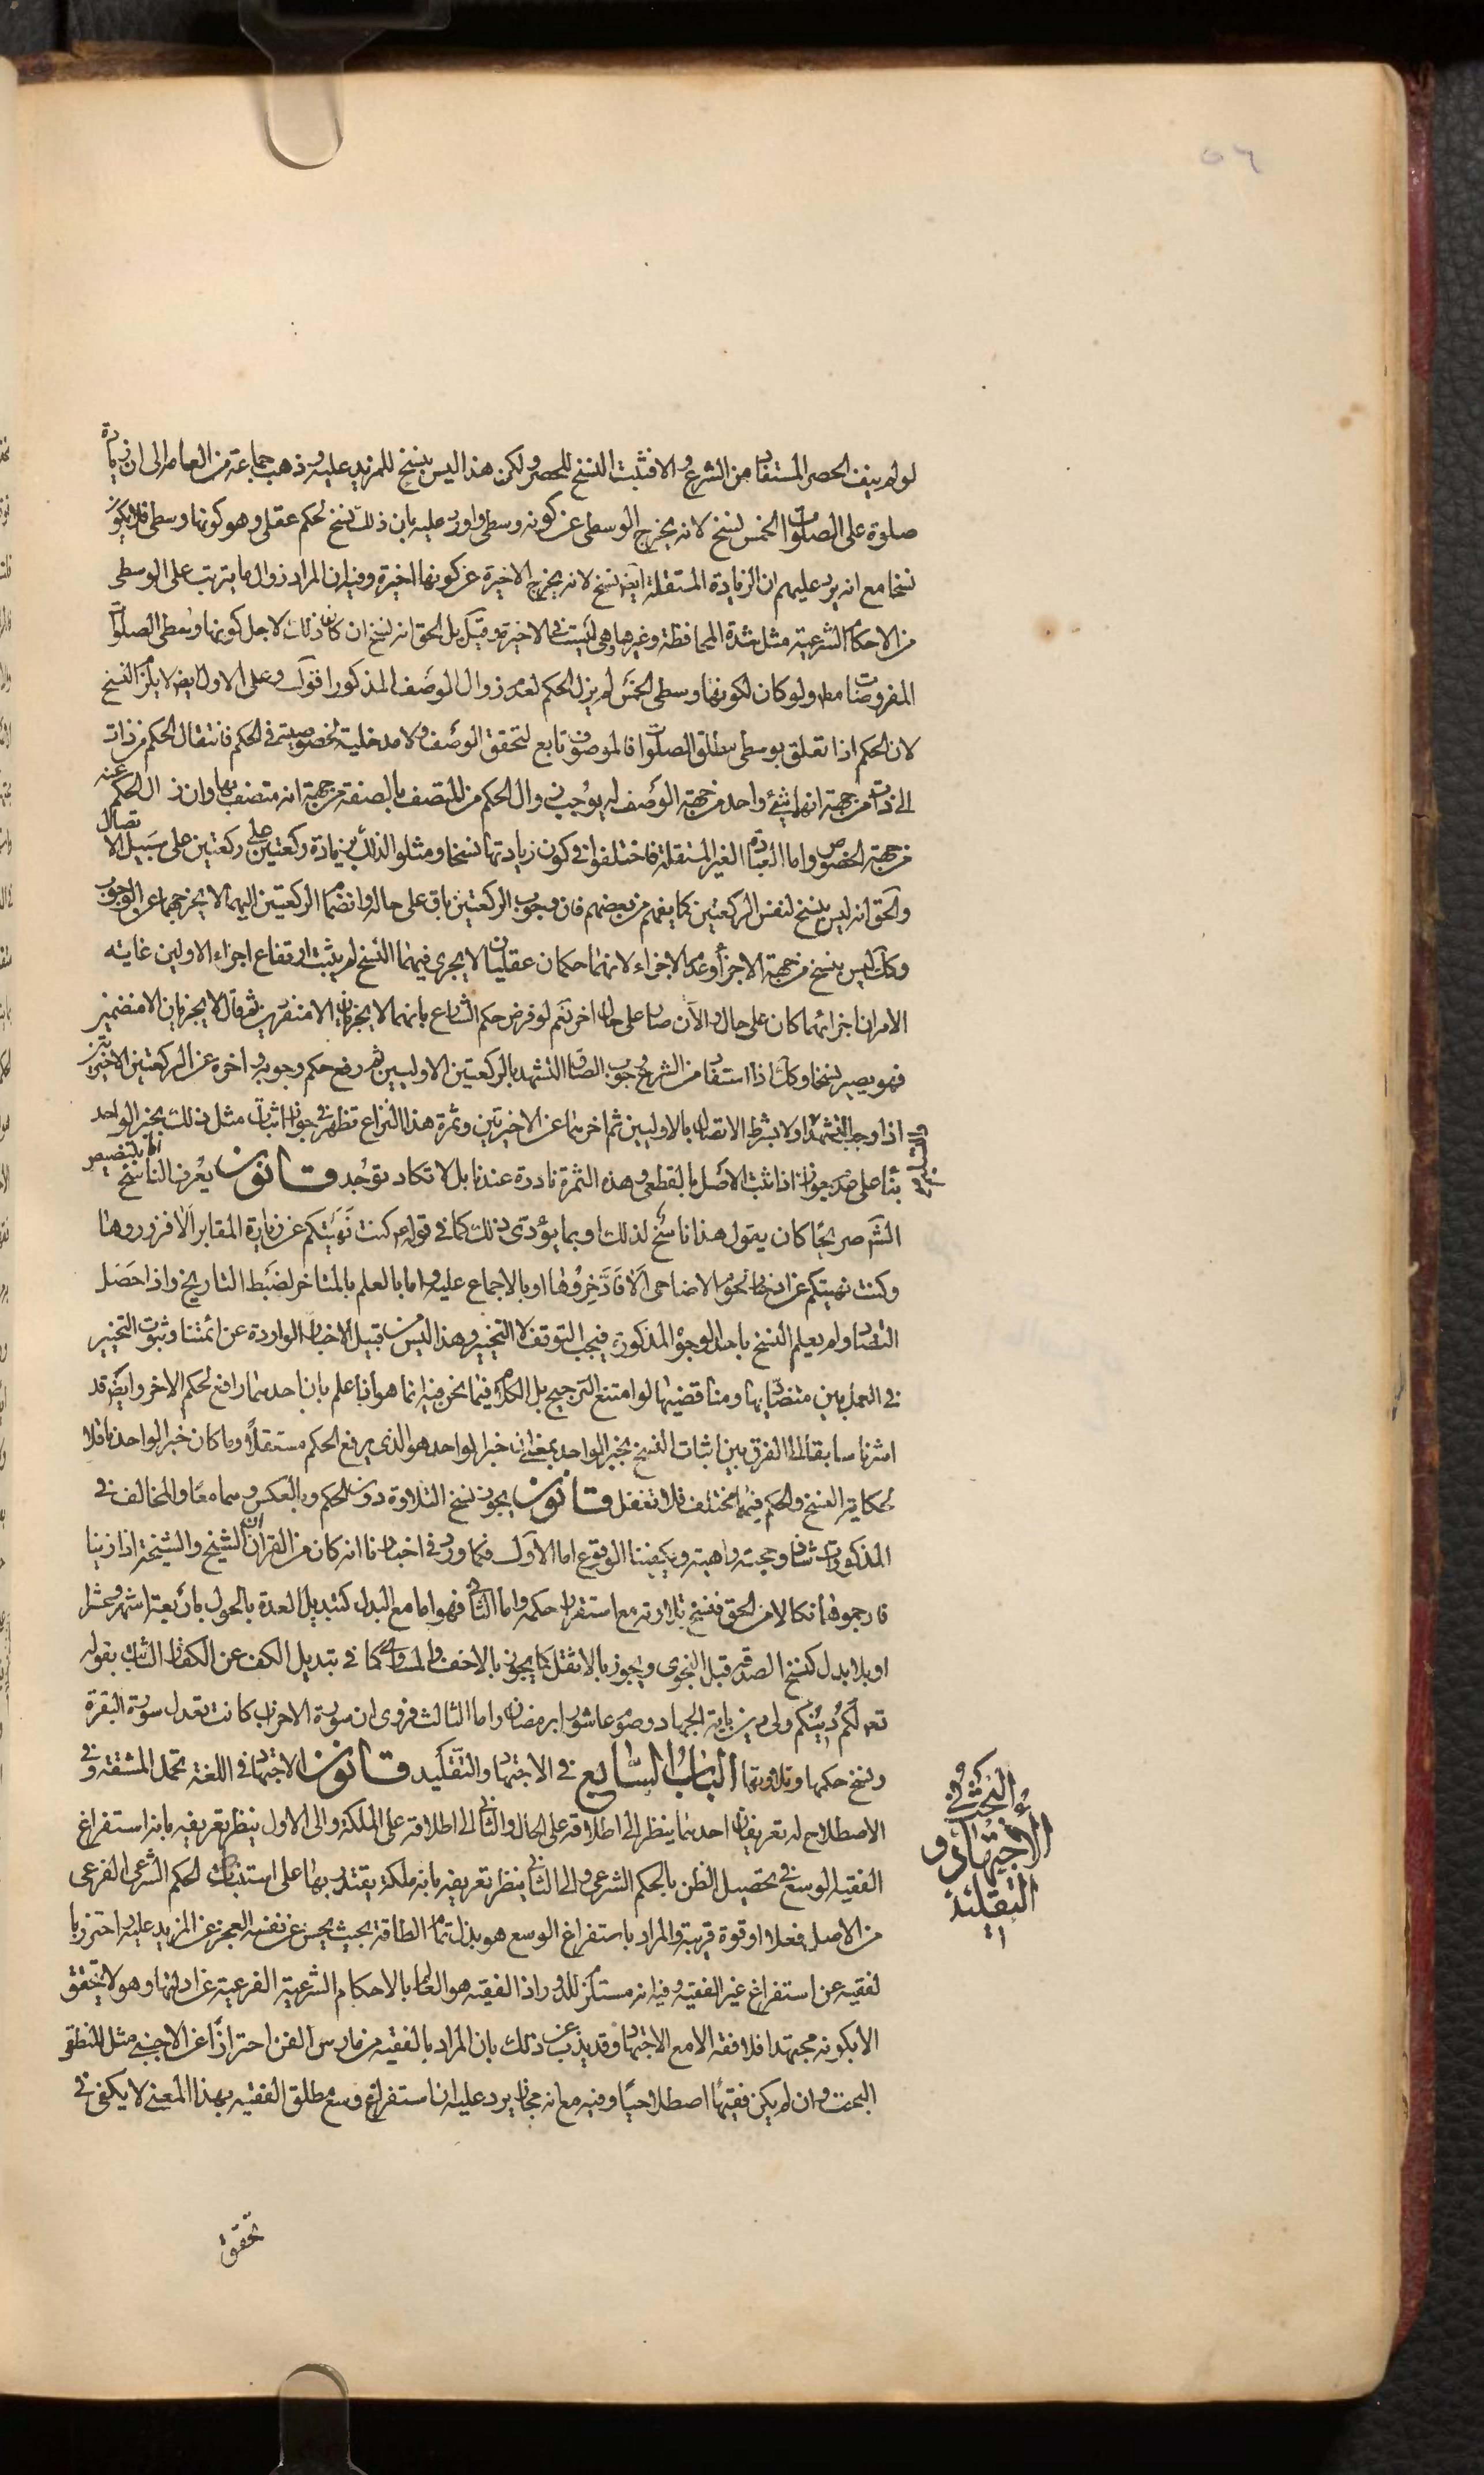 ٥٦
لو لم ينف الحصر المستفاد من الشرع والا فثبت النسخ للحصر ولكن هذا ليس بنسخ للمزيد عليه وذهب جماعة من العامه الى ان زيادة
صلوة على الصلوات الخمس نسخ لانه يخرج الوسطى عن كونه وسطى واورد عليه بان ذلك نسخ لحكم عقلى وهو كونها وسطى فلا يكون
نسخا مع انه يرد عليهم ان الزيادة المستقلة ايضا نسخ لانه يخرج الاخيرة عن كونها اخيرة وفيه ان المراد زوال ما يترتب على الوسطى
من الاحكام الشرعية مثل شدة المحافظة وغيرها وهى ليست فى الاخيرة وقيل بل الحق انه نسخ ان كان ذلك لاجل كونها وسطى الصلوات
المفروضات مط ولو كان لكونها وسطى الخمس لم يزل الحكم لعدم زوال الوصف المذكور اقول وعلى الاول ايضا لا يلزم النسخ
لان الحكم اذا تعلق بوسطى مطلق الصلوات فالموصوف تابع لتحقق الوصف ولا مدخلية لخصوصيته فى الحكم فانتقال الحكم من ذات
الى ذات من جهة انها شئ واحد من جهة الوصف لم يوجب زوال الحكم من المتصف بالصفة من جهة انه متصف بها وان زال الحكم عنه
من جهة الخصوص واما العبادة الغير المستقلة فاختلفوا فى كون زيادتها نسخا ومثلوا لذلك بزيادة ركعتين على ركعتين على سبيل الاتصال
والحق انه ليس بنسخ لنفس الركعتين كما يفهم من بعضهم فان وجوب الركعتين باق على حاله وانضمام الركعتين اليهما لا يخرجهما عن الوجوب
وكك ليس بنسخ من جهة الاجزاء وعدم الاجزاء لانهما حكمان عقليان لا يجرى فيهما النسخ لم يثبت ارتفاع اجزاء الاولين غايته
الامر ان اجزائهما كان على حال والآن صار على حال اخر نعم لو فرض حكم الشارع بانهما لا يجزيان الا منفردين ثم قال لا يجزيان الا منضمين
فهو يصير نسخا وكك اذا استفاد من الشرع وجوب الصاق التشهد بالركعتين الاوليين ثم رفع حكم وجوبه واخره عن الركعتين الاخيرتين
اذا وجب التشهد اولا بشرط الاتصال بالاوليين ثم اخرهما عن الاخيرتين وثمرة هذا النزاع تظهر فى جواز اثبات مثل ذلك بخبر الواحد
بناء على عدم جوازه اذا ثبت الاصل بالقطعى وهذه الثمرة نادرة عندنا بل لا تكاد توجد قانون يعرف الناسخ اما بتنصيص
الشرع صريحا كان يقول هذا ناسخ لذلك او بما يؤدى ذلك كما فى قوله ع كنت نهيتكم عن زيارة المقابر الا فزوروها
وكنت نهيتكم عن ادخار لحوم الاضاحى الا فادخروها او بالاجماع عليه واما بالعلم بالمتاخر لضبط التاريخ واذا حصل
التضاد ولم يعلم النسخ باحد الوجوه المذكورة فيجب التوقف لا التخيير وهذا ليس من قبيل الاخبار الواردة عن ائمتنا وثبوت التخيير
فى العمل بين متضاداتها ومتناقضيتها لو امتنع الترجيح بل الكلام فيما نحن فيه انما هو انا نعلم بان احدهما رافع لحكم الاخر وايضا قد
اشرنا سابقا الى الفرق بين اثبات النسخ بخبر الواحد بمعنى ان خبر الواحد هو الذى يرفع الحكم مستقلا وما كان خبر الواحد ناقلا
لحكاية النسخ والحكم فيهما مختلف فلا تغفل قانون يجوز نسخ التلاوة دون الحكم وبالعكس وهما معا والمخالف فى
المذكورات شاذ وحجته واهية ويكفينا الوقوع اما الاول فكما ورد فى اخبارنا انه كان من القرآن الشيخ والشيخة اذا زنيا
فارجموهما نكالا من الحق فنسخ تلاوته مع استقرار حكمه واما الثانى فهو اما مع البدل كتبديل العدة بالحول باربعة اشهر وعشرا
او بلا بدل كنسخ الصدقه قبل النجوى ويجوز بالاثقل كما يجوز بالاخف والمساوى كما فى تبديل الكف عن الكفار الثابت بقوله
تع لكم دينكم ولى دين باية الجهاد وصوم عاشورا برمضان واما الثالث فروى ان سورة الاحزاب كانت تعدل سورة البقرة
ونسخ حكمها وتلاوتها الباب السابع فى الاجتهاد والتقليد قانون الاجتهاد فى اللغة تحمل المشقة وفى
الاصطلاح له تعريفان احدهما ينظر الى اطلاقه على الحال والثانى الى اطلاقه على الملكة والى الاول ينظر تعريفه بانه استفراغ
الفقيه الوسع فى تحصيل الظن بالحكم الشرعى والى الثانى ينظر تعريفه بانه ملكة يقتدر بها على استنباط الحكم الشرعى الفرعى
من الاصل فعلا او قوة قريبة والمراد باستفراغ الوسع هو بذل تمام الطاقة بحيث يحس عن نفسه العجز عن المزيد عليه واحترز با
لفقيه عن استفراغ غير الفقيه وفيه انه مستلزم للدور اذ الفقيه هو العالم بالاحكام الشرعية الفرعية عن ادلتها وهو لا يتحقق
الا بكونه مجتهدا فلا فقه الا مع الاجتهاد وقد يذب عن ذلك بان المراد بالفقيه من مارس الفن احترازا عن الاجنبى مثل المنطقى
البحت وان لم يكن فقيها اصطلاحيا وفيه مع انه مجاز يرد عليه ان استفراغ وسع مطلق الفقيه بهذا المعنى لا يكفى فى
تحقق
البحث فى
الاجتهاد و
التقليد